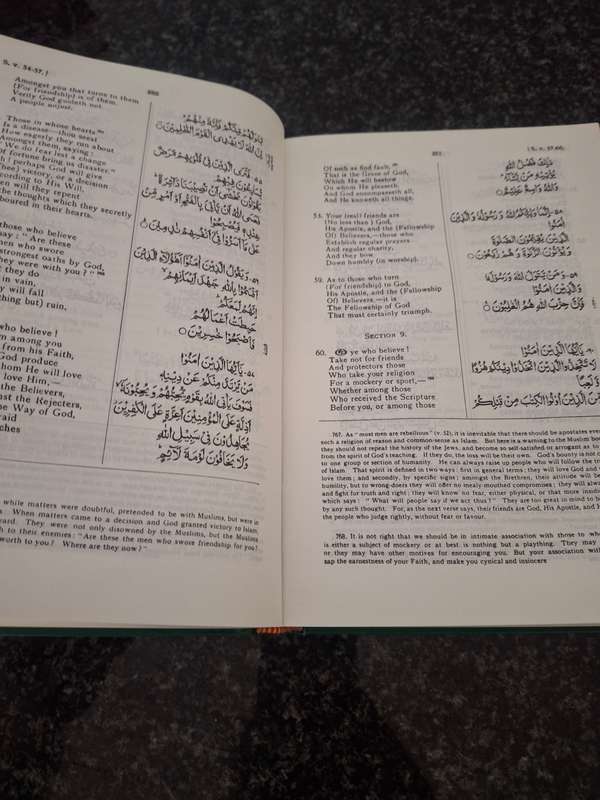 S. v. 54-57.]
Amongst you that turns to them
(For friendship) is of them.
Verily God guideth not
A people unjust.
Those in whose hearts
Is a disease—thou seest
How eagerly they run about
Amongst them, saying:
We do fear lest a change
Of fortune bring us disaster."
perhaps God will give
(thee) victory, or a decision
According to His Will.
will they repent
thoughts which they secretly
boured in their hearts.
those who believe
say: "Are these
men who swore
strongest oaths by God,
they were with you?"
they do
in vain,
will fall
(nothing but) ruin.
who believe!
among you
from his Faith,
God produce
whom He will love
love Him,—
the Believers,
against the Rejecters,
the Way of God,
وَيَقُولُ الَّذِينَ آمَنُوا أَهَؤُلَاءِ الَّذِينَ
أَقْسَمُوا بِاللَّهِ جَهْدَ أَيْمَانِهِمْ
إِنَّهُمْ لَمَعَكُمْ
حَبِطَتْ أَعْمَالُهُمْ
فَأَصْبَحُوا خَاسِرِينَ
يَا أَيُّهَا الَّذِينَ آمَنُوا
مَنْ يَرْتَدَّ مِنْكُمْ عَنْ دِينِهِ
فَسَوْفَ يَأْتِي اللَّهُ بِقَوْمٍ يُحِبُّهُمْ وَيُحِبُّونَهُ
أَذِلَّةٍ عَلَى الْمُؤْمِنِينَ أَعِزَّةٍ عَلَى الْكَافِرِينَ
يُجَاهِدُونَ فِي سَبِيلِ اللَّهِ
وَلَا يَخَافُونَ لَوْمَةَ لَائِمٍ
while matters were doubtful, pretended to be with Muslims, but were in
When matters came to a decision and God granted victory to Islam,
They were not only disowned by the Muslims, but the Muslims
to their enemies: "Are these the men who swore friendship for you?
worth to you? Where are they now?"
[S. v. 57-60.
Of such as find fault.
That is the Grace of God,
Which He will bestow
On whom He pleaseth.
And God encompasseth all,
And He knoweth all things.
Your (real) friends are
(No less than) God,
His Apostle, and the (Fellowship
Of) Believers,—those who
Establish regular prayers
And regular charity,
And they bow
Down humbly (in worship).
59. As to those who turn
(For friendship) to God,
His Apostle, and the (Fellowship
Of) Believers,—it is
The Fellowship of God
That must certainly triumph.
SECTION 9.
60. O ye who believe!
Take not for friends
And protectors those
Who take your religion
For a mockery or sport,—
Whether among those
Who received the Scripture
Before you, or among those
ذَلِكَ فَضْلُ اللَّهِ
يُؤْتِيهِ مَنْ يَشَاءُ
وَاللَّهُ وَاسِعٌ عَلِيمٌ
إِنَّمَا وَلِيُّكُمُ اللَّهُ وَرَسُولُهُ وَالَّذِينَ
آمَنُوا
الَّذِينَ يُقِيمُونَ الصَّلَاةَ
وَيُؤْتُونَ الزَّكَاةَ وَهُمْ رَاكِعُونَ
وَمَنْ يَتَوَلَّ اللَّهَ وَرَسُولَهُ
وَالَّذِينَ آمَنُوا
فَإِنَّ حِزْبَ اللَّهِ هُمُ الْغَالِبُونَ
يَا أَيُّهَا الَّذِينَ آمَنُوا
لَا تَتَّخِذُوا الَّذِينَ اتَّخَذُوا دِينَكُمْ هُزُوًا
وَلَعِبًا
مِنَ الَّذِينَ أُوتُوا الْكِتَابَ مِنْ قَبْلِكُمْ
767. As "most men are rebellious" (v. 52), it is inevitable that there should be apostates even
such a religion of reason and common-sense as Islam. But here is a warning to the Muslim
they should not repeat the history of the Jews, and become so self-satisfied or arrogant as to
from the spirit of God's teaching. If they do, the loss will be their own. God's bounty is not
to one group or section of humanity. He can always raise up people who will follow the
of Islam. That spirit is defined in two ways: first in general terms: they will love God and
love them; and secondly, by specific signs: amongst the Brethren, their attitude will be
humility, but to wrong-doers they will offer no mealy-mouthed compromises; they will always
and fight for truth and right; they will know no fear, either physical, or that more
which says: "What will people say if we act thus?" They are too great in mind to be
by any such thought. For, as the next verse says, their friends are God, His Apostle, and
the people who judge rightly, without fear or favour.
768. It is not right that we should be in intimate association with those to
is either a subject of mockery or at best is nothing but a plaything. They may
or they may have other motives for encouraging you. But your association with
sap the earnestness of your Faith, and make you cynical and insincere